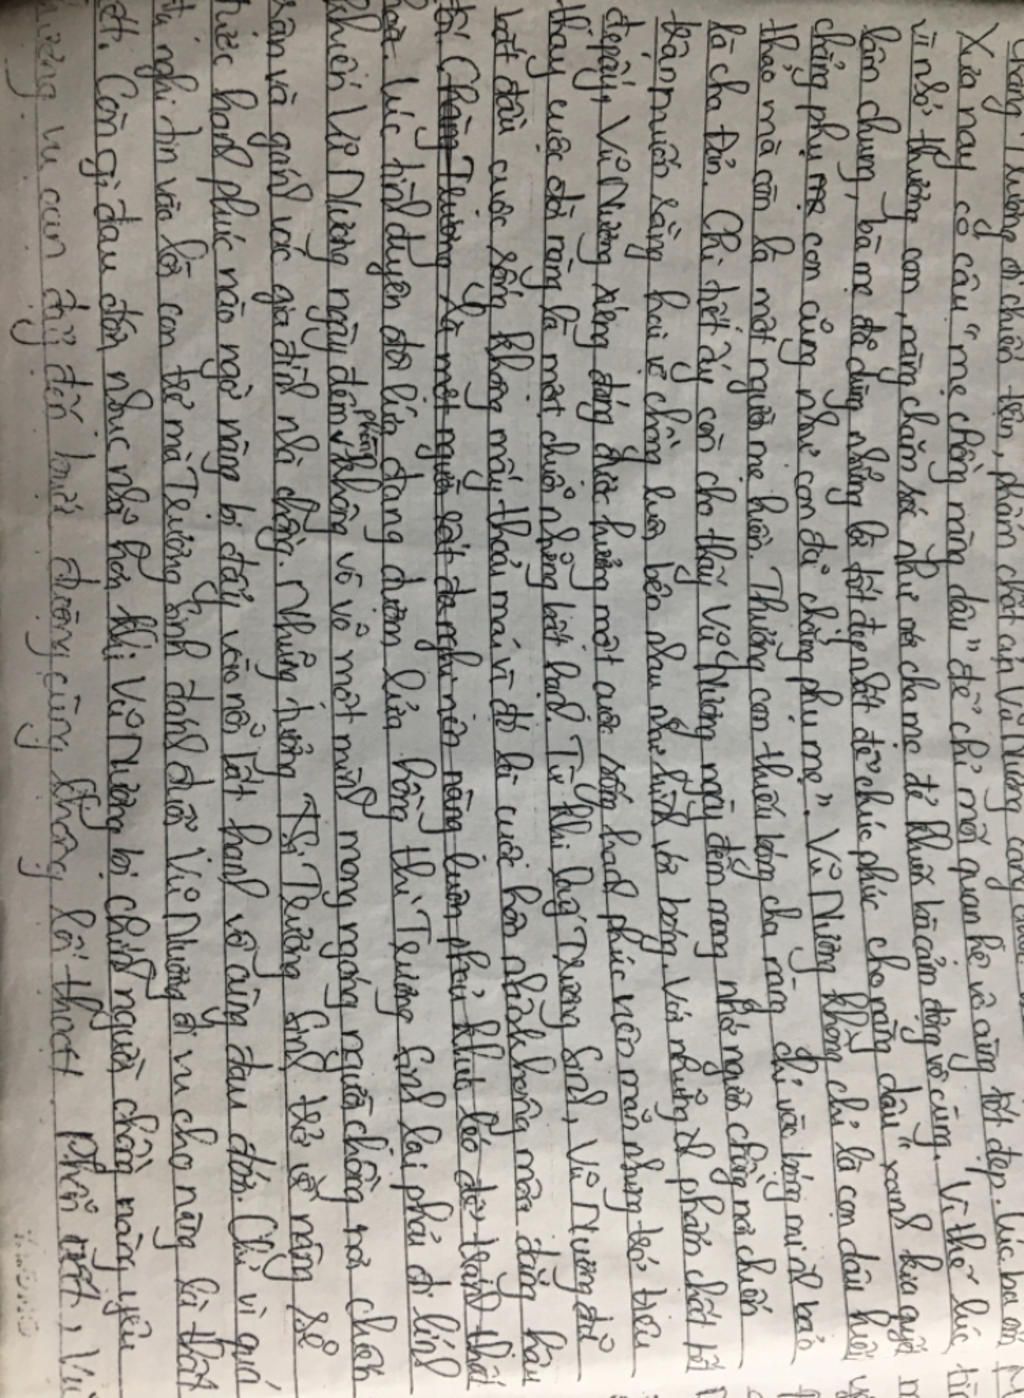 chàng Trương đi chiến trận, phẩm chất của Vũ Nương càng
Xưa nay có câu "mẹ chồng nàng dâu" để chỉ mối quan hệ vô cùng tốt đẹp. Lúc bà ốm
vì nhớ thương con, nàng chăm sóc như với cha mẹ đẻ khiến bà cảm động vô cùng. Vì thế lúc
lâm chung, bà mẹ đã dùng những lời tốt đẹp nhất để chúc phúc cho nàng dâu "xanh kia quyết
chẳng phụ mẹ con cũng như con đã chẳng phụ mẹ". Vũ Nương không chỉ là con dâu hiếu
thảo mà còn là một người mẹ hiền. Thương con thiếu bóng cha nàng chỉ vào bóng mình bảo
là cha Đản. Chi tiết ấy còn cho thấy Vũ Nương ngày đêm mong nhớ người chồng nơi chiến
trận muốn rằng hai vợ chồng luôn bên nhau như hình với bóng. Với những phẩm chất tốt
đẹp ấy, Vũ Nương xứng đáng được hưởng một cuộc sống hạnh phúc viên mãn nhưng trớ trêu
thay cuộc đời nàng là một chuỗi những bất hạnh. Từ khi lấy Trương Sinh, Vũ Nương đã
bắt đầu cuộc sống không mấy thoải mái vì đó là cuộc hôn nhân không môn đăng hậu
đối. Chàng Trương là một người rất đa nghi nên nàng luôn phải khéo léo để tránh thất
hoà. Lúc tình duyên đôi lứa đang đượm lửa hồng thì Trương Sinh lại phải đi lính
khiến Vũ Nương ngày đêm phòng không vò võ một mình mong ngóng người chồng nơi chiến
trận và gánh vác gia đình nhà chồng. Những tưởng khi Trương Sinh trở về nàng sẽ
được hạnh phúc nào ngờ nàng bị đẩy vào nỗi bất hạnh vô cùng đau đớn. Chỉ vì quá
đa nghi tin vào lời con trẻ mà Trương Sinh đánh đuổi Vũ Nương đi vu cho nàng là thất
tiết. Còn gì đau đớn nhục nhã hơn khi Vũ Nương bị chính người chồng nàng yêu
thương vu oan đẩy đến bước đường cùng không lối thoát